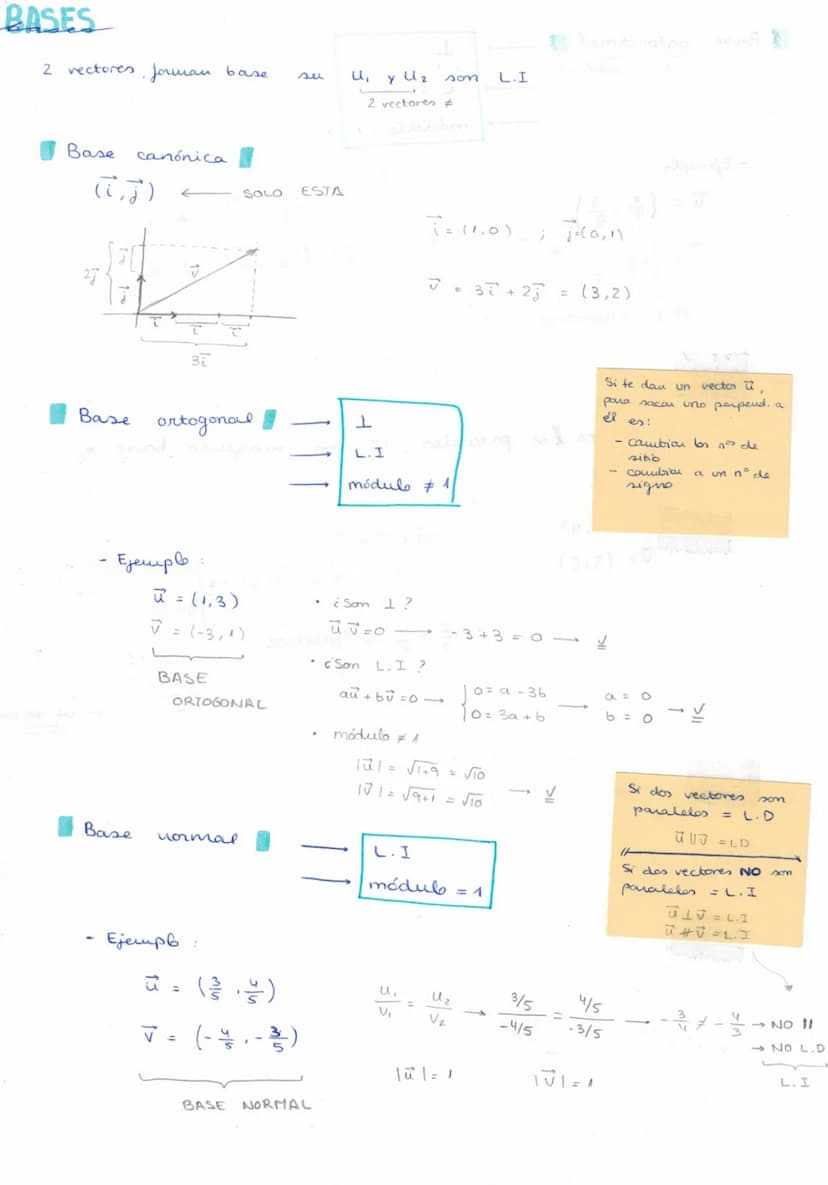 BASES
2 vectores forman base seu U₁ y U₂ son L.I
2 vectores ≠
Base canónica
(i⃗, j⃗) ← SOLO ESTA
i⃗ = (1,0) ; j⃗=(0,1)
v⃗ = 3i⃗ + 2j⃗ = (3,2)
2j⃗
j⃗
j⃗
v⃗
i⃗ i⃗ i⃗
3i⃗
Si te dan un vector u⃗,
para sacar uno perpend. a
él es:
- cambiar los nºs de
sitio
- cambiar a un nº de
signo
Base ortogonal
→ ⊥
→ L.I
→ módulo ≠ 1
- Ejemplo :
u⃗ = (1,3)
v⃗ = (-3,1)
BASE
ORTOGONAL
• ¿Son ⊥ ?
u⃗ v⃗ = 0 → -3+3 = 0 → √
• ¿Son L.I ?
au⃗ + bv⃗ = 0 → { 0 = a - 3b
0 = 3a + b → a = 0
b = 0 → √
• módulo ≠ 1
|u⃗| = √1+9 = √10
|v⃗| = √9+1 = √10 → √
Si dos vectores son
paralelos = L.D
u⃗ || v⃗ = LD
Si dos vectores NO son
paralelos = L.I
u⃗ ⊥ v⃗ = L.I
u⃗ ∦ v⃗ = L.I
Base normal
→ L.I
→ módulo = 1
- Ejemplo :
u⃗ = (3/5 , 4/5)
v⃗ = (-4/5 , -3/5)
BASE NORMAL
u₁/v₁ = u₂/v₂ → 3/5/-4/5 = 4/5/-3/5 → -3/4 ≠ -4/3 → NO ||
→ NO L.D
L.I
|u⃗| = 1 |v⃗| = 1